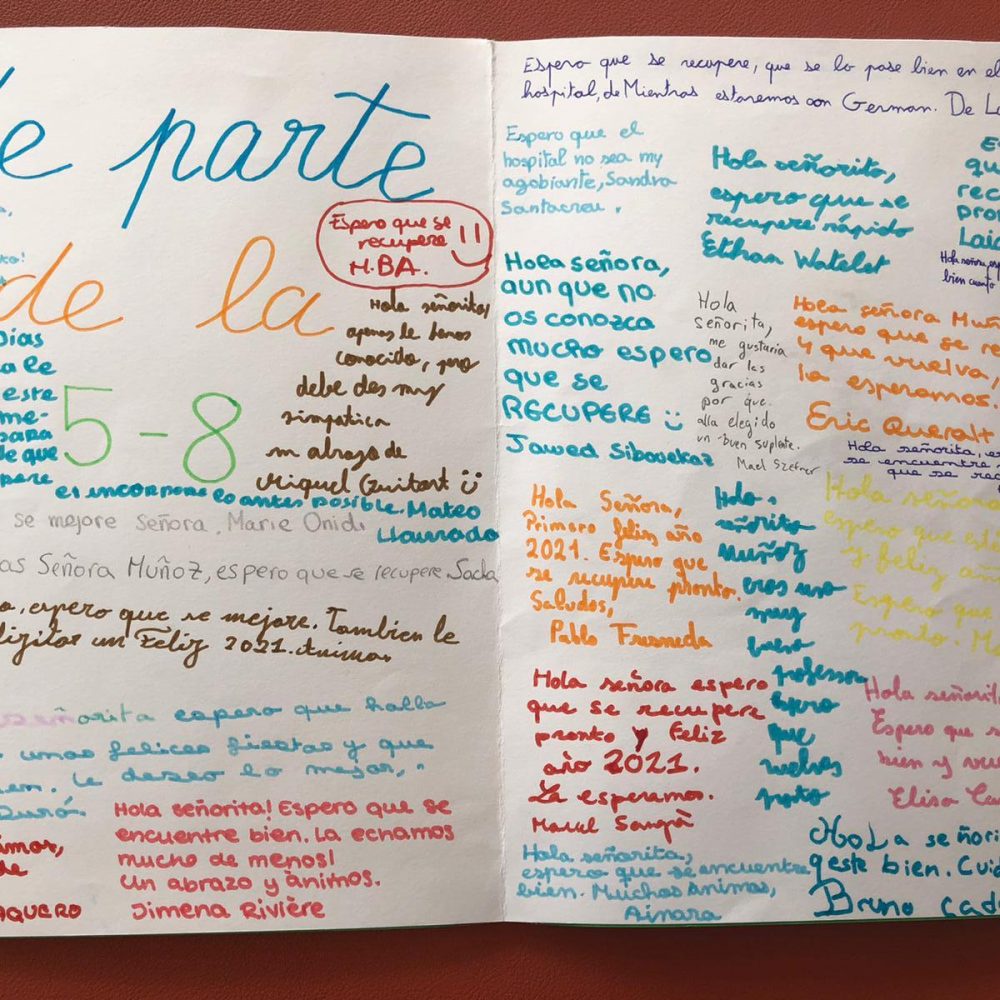 de parte
de la
5-8
Espero que se
recupere
M.BA.
Hola señorita,
apenas le hemos
conocido, pero
debe des muy
simpatica
un abrazo de
Miquel Guitart
Días
a le
este
me-
para
de que
pere
el incorpore lo antes posible. Mateo
Llaurado
se mejore Señora, Marie Onidi
as Señora Muñoz, espero que se recupere. Sacha
a, espero que se mejore. Tambien le
un Feliz 2021.
señorita espero que halla
unas felices fiestas y que
en. Le deseo lo mejor,
Duró.
nimos,
de
AQUERO
Hola señorita! Espero que se
encuentre bien. La echamos
mucho de menos!
Un abrazo y ànimos.
Jimena Rivière
Espero que se recupere, que se lo pase bien en el
hospital, de Mientras estaremos con German. De
Espero que el
hospital no sea my
agobiante, Sandra
Santacreu.
Hola señorita,
espero que se
recupere rápido
Ethan Watelet
Es
qu
rec
pron
Laia
Hola señora, esp
bien cuanto
Hola señora,
aun que no
os conozca
mucho espero
que se
RECUPERE
Jawed Sibovekaz
Hola
señorita,
me gustaria
dar las
gracias
por que
alla elegido
un buen suplente.
Mael Szefner
Hola señora Muñ
espero que se re
y que vuelva,
la esperamos.
Eric Queralt
Hola señorita, es
se encuentre
que se rec
Hola Señora,
Primero feliz año
2021. Espero que
se recupere pronto.
Saludos,
Pablo Fresneda
Hola
señorita
Muñoz
eres una
muy
buena
profesora
espero
que
vuelvas
pronto
Hola señor
espero que esté
y feliz añ
Espero que
pronto. M
Hola señora espero
que se recupere
pronto y Feliz
año 2021.
La esperamos.
Marcel Sangrà
Hola señorit
Espero que s
bien y vue
Elisa
Hola señorita,
espero que se encuentre
bien. Muchos Animas,
Ainara
HoLa señori
q este bien. Cuid
Bruno Cad